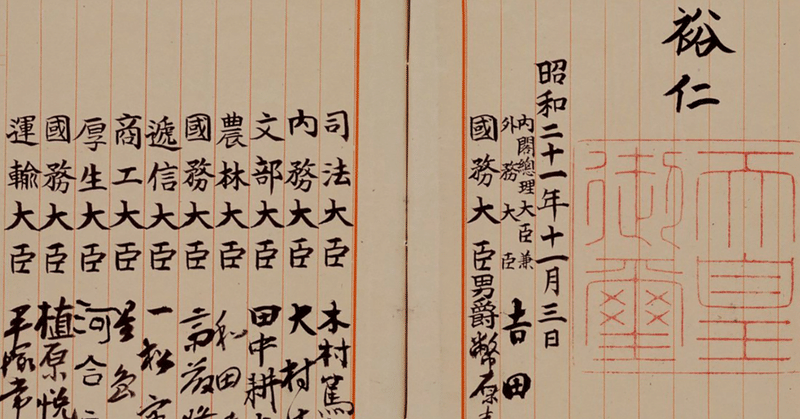 裕仁
天皇
御璽
昭和二十一年十一月三日
内閣總理大臣兼
外務大臣
吉田
國務大臣男爵幣原喜
司法大臣木村篤
内務大臣大村
文部大臣田中耕
農林大臣和田
國務大臣斎藤隆
遞信大臣一松定
商工大臣星島
厚生大臣河合
國務大臣植原悦
運輸大臣平塚常